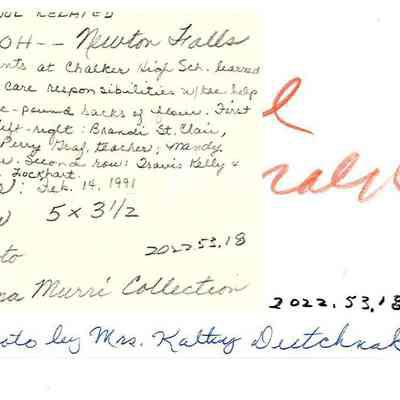 RELATED
OH-- Newton Falls
nts at Chalker High Sch. learned
care responsibilities w/the help
e-pound sacks of flour. First
left-right: Brandi St. Clair,
Perry Gray, teacher; Mandy
Second row: Travis Kelly &
Lockhart.
: Feb. 14, 1991
5 x 3 1/2
oto
2022.53.18
na Murri Collection
2022.53.18
oto by Mrs. Kathy Deitchrak